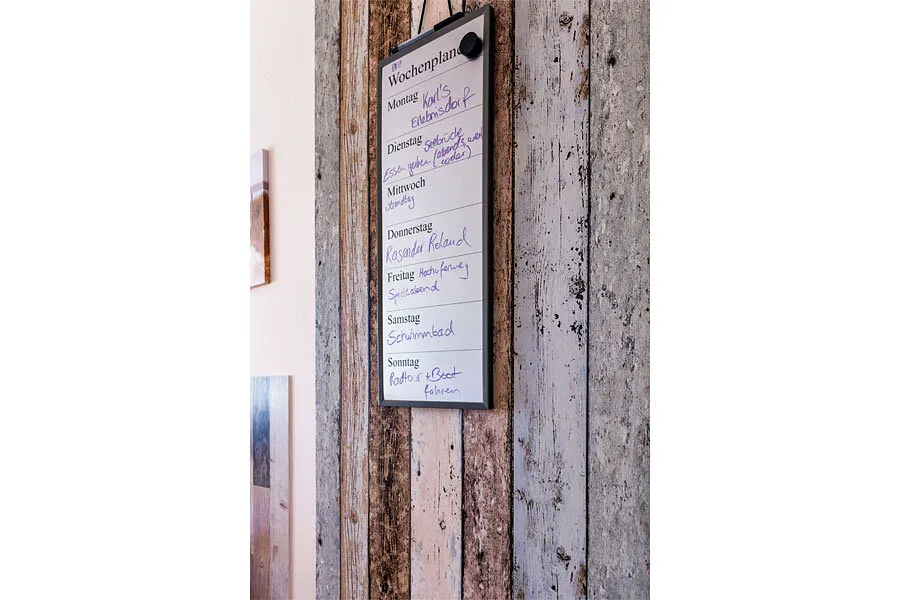 Wochenplan
Montag Karl's
Erlebnisdorf
Dienstag Seebrücke
Essen gehen (abends,
Mittwoch
Strandtag
Donnerstag
Rasender Roland
Freitag Hochuferweg
Spieleabend
Samstag
Schwimmbad
Sonntag
Radtour + Boot
fahren